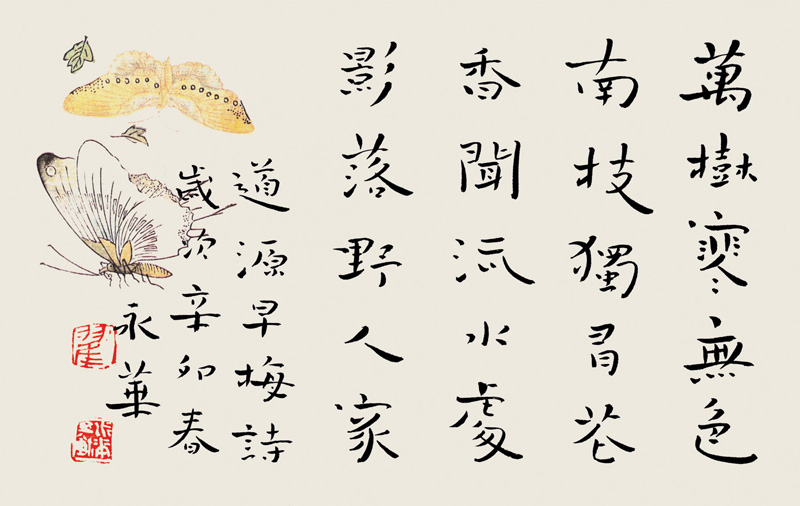 萬樹寒無色
南枝獨有花
香聞流水處
影落野人家
道源早梅詩
歲次辛卯春
永華
翟